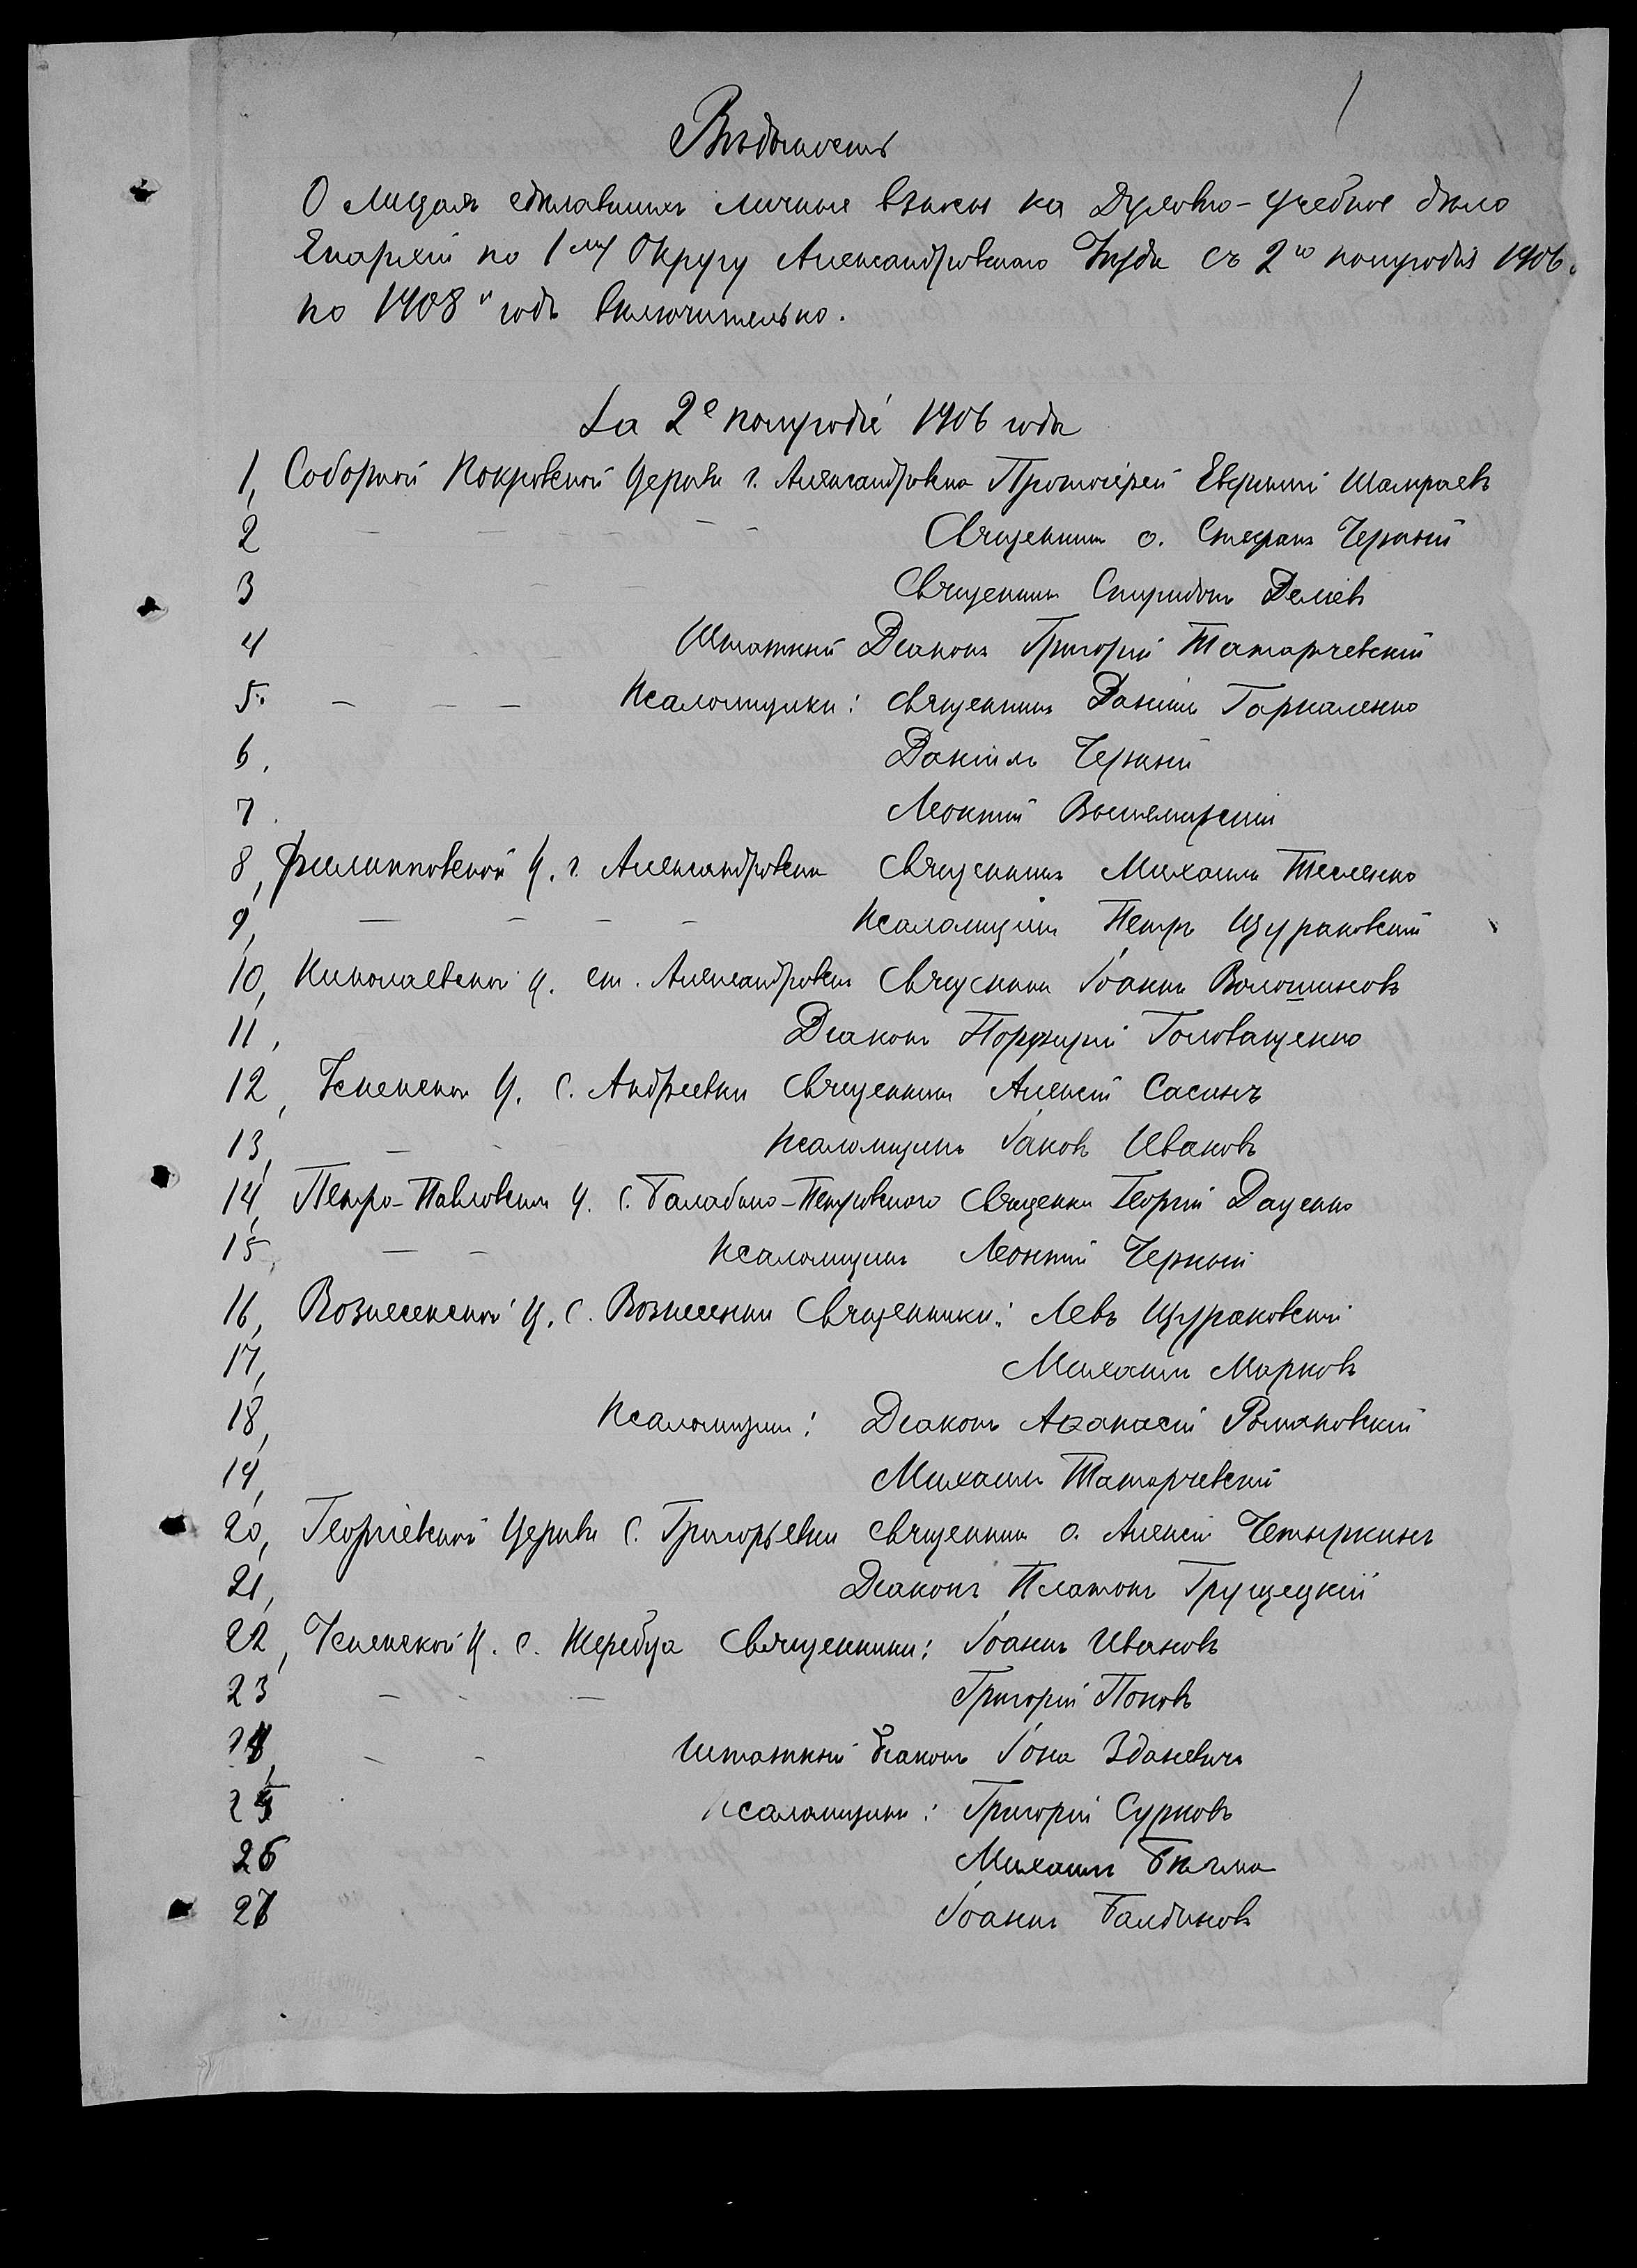 Вѣдомость
О лицахъ сдѣлавшихъ личные взносы на Духовно-учебное дѣло
Епархіи по 1му Округу Александровскаго Уѣзда съ 2го полугодія 1906.
по 1908й годъ включительно.
За 2е полугодіе 1906 года
1, Соборной Покровской Церкви г. Александровска Протоіерей Евѳимій Шамраевъ
2 Священникъ о. Стефанъ Черный
3 Священникъ Спиридонъ Деліевъ
4 Штатный Діаконъ Григорій Татарчевскій
5. Псаломщики: священникъ Даніилъ Гаркаленко
6, Даніилъ Черный
7. Леонтій Вышемірскій
8, Филипповской Ц. г. Александровска Священникъ Михаилъ Тесленко
9, Псаломщикъ Петръ Щураковскій
10, Николаевской ц. ст. Александровскъ Священникъ Іоаннъ Волошиновъ
11, Діаконъ Порфирій Головащенко
12, Успенской Ц. с. Андреевки Священникъ Алексій Сасинъ
13, Псаломщикъ Іаковъ Ивановъ
14, Петро-Павловской Ц. с. Балабино-Петровскаго Священник Георгій Даценко
15, Псаломщикъ Леонтій Черный
16, Вознесенской Ц. с. Вознесенки Священники: Левъ Щураковскій
17, Михаилъ Марковъ
18, Псаломщики: Діаконъ Аѳанасій Романовскій
19, Михаилъ Татарчевскій
20, Георгіевской Церкви с. Григорьевки священникъ о. Алексій Четыркинъ
21, Діаконъ Платонъ Грущецкій
22, Успенской Ц. с. Жеребца Священники: Іоаннъ Ивановъ
23 Григорій Поповъ
24, Штатный Діаконъ Іона Здановичъ
25 Псаломщики: Григорій Сурковъ
26 Михаилъ
27 Іоаннъ Балдиновъ